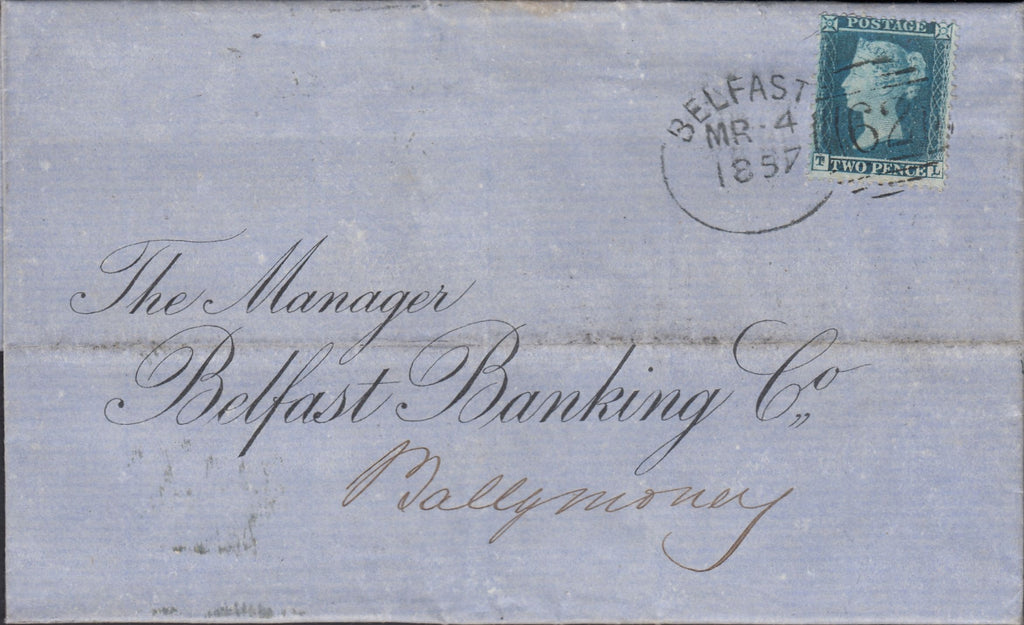 POSTAGE
BELFAST
MR 4
1857
62
T TWO PENCE L
The Manager
Belfast Banking Co„
Ballymoney